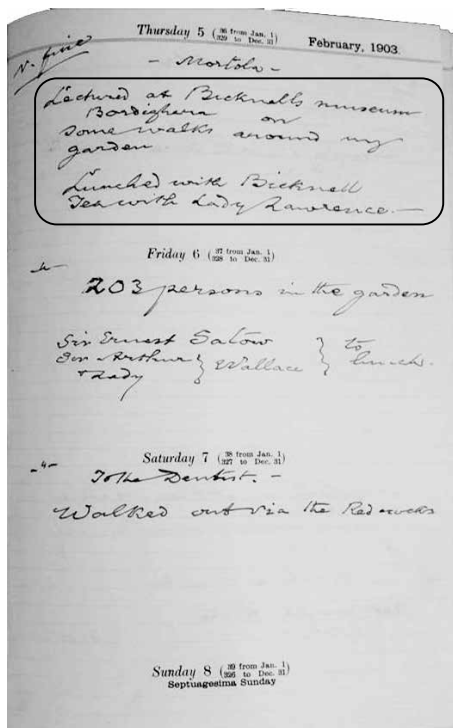 Thursday 5 (36 from Jan. 1 329 to Dec. 31) February, 1903.
V. fine
- Mortola -
Lectured at Bicknell's museum
Bordighera on
some walks around my
garden
Lunched with Bicknell
Tea with Lady Lawrence.—
Friday 6 (37 from Jan. 1 328 to Dec. 31)
203 persons in the garden
Sir Ernest Satow
Sir Arthur } Wallace } to lunch.
& Lady
Saturday 7 (38 from Jan. 1 327 to Dec. 31)
-"-
To the Dentist. -
Walked out via the Red rocks
Sunday 8 (39 from Jan. 1 326 to Dec. 31)
Septuagesima Sunday